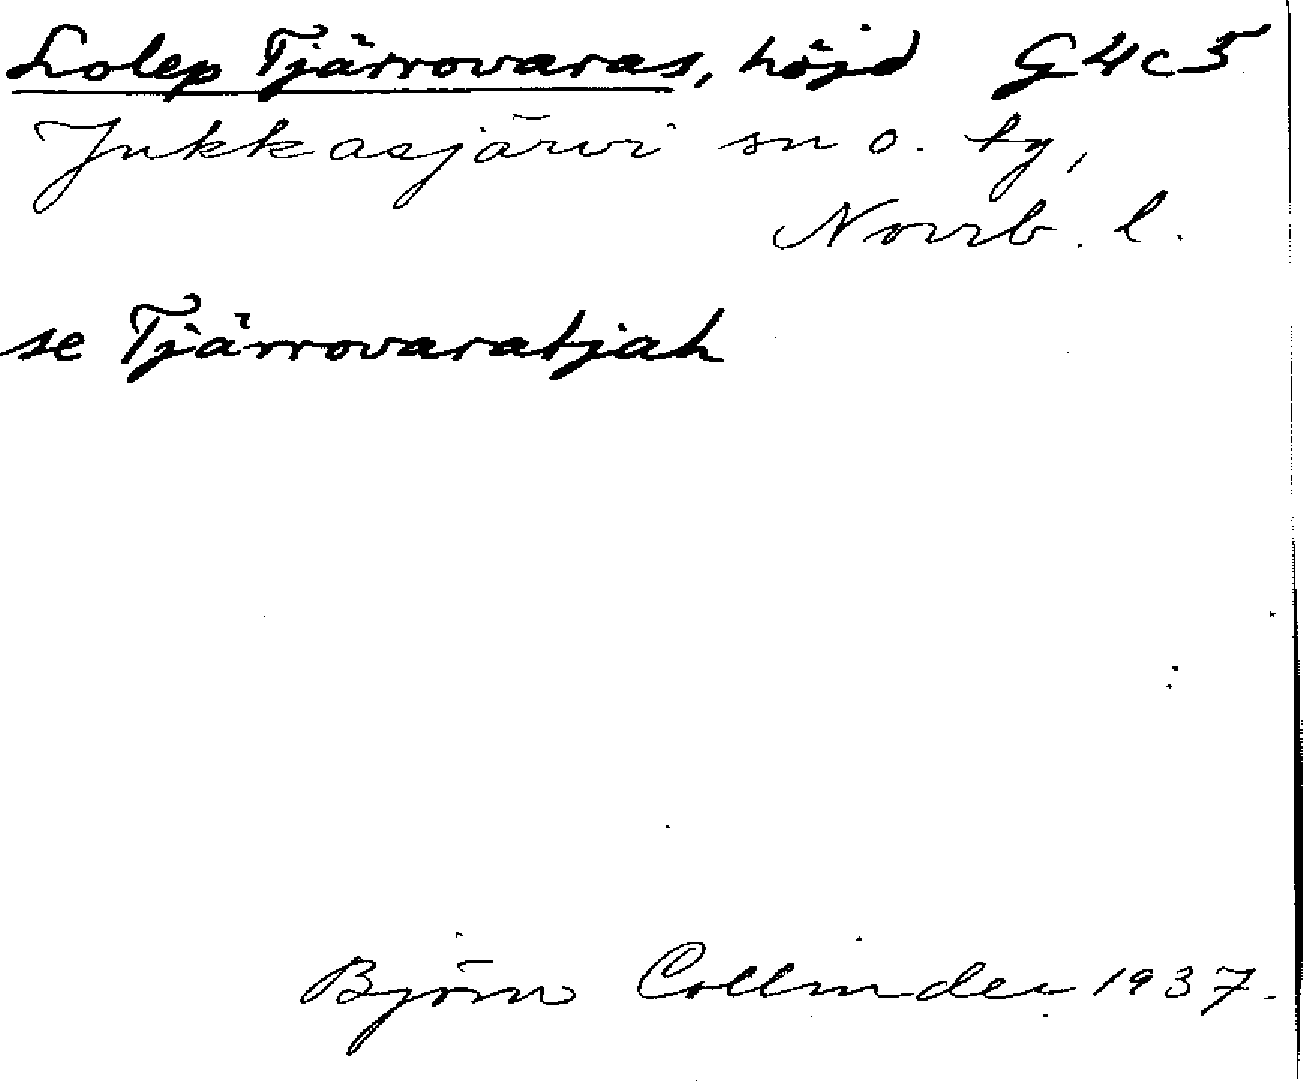 Lolep Tjärrovaras, höjd G4c5
Jukkasjärvi sn o. tg,
Norrb. l.
se Tjärrovaratjah
Björn Collinder 1937.